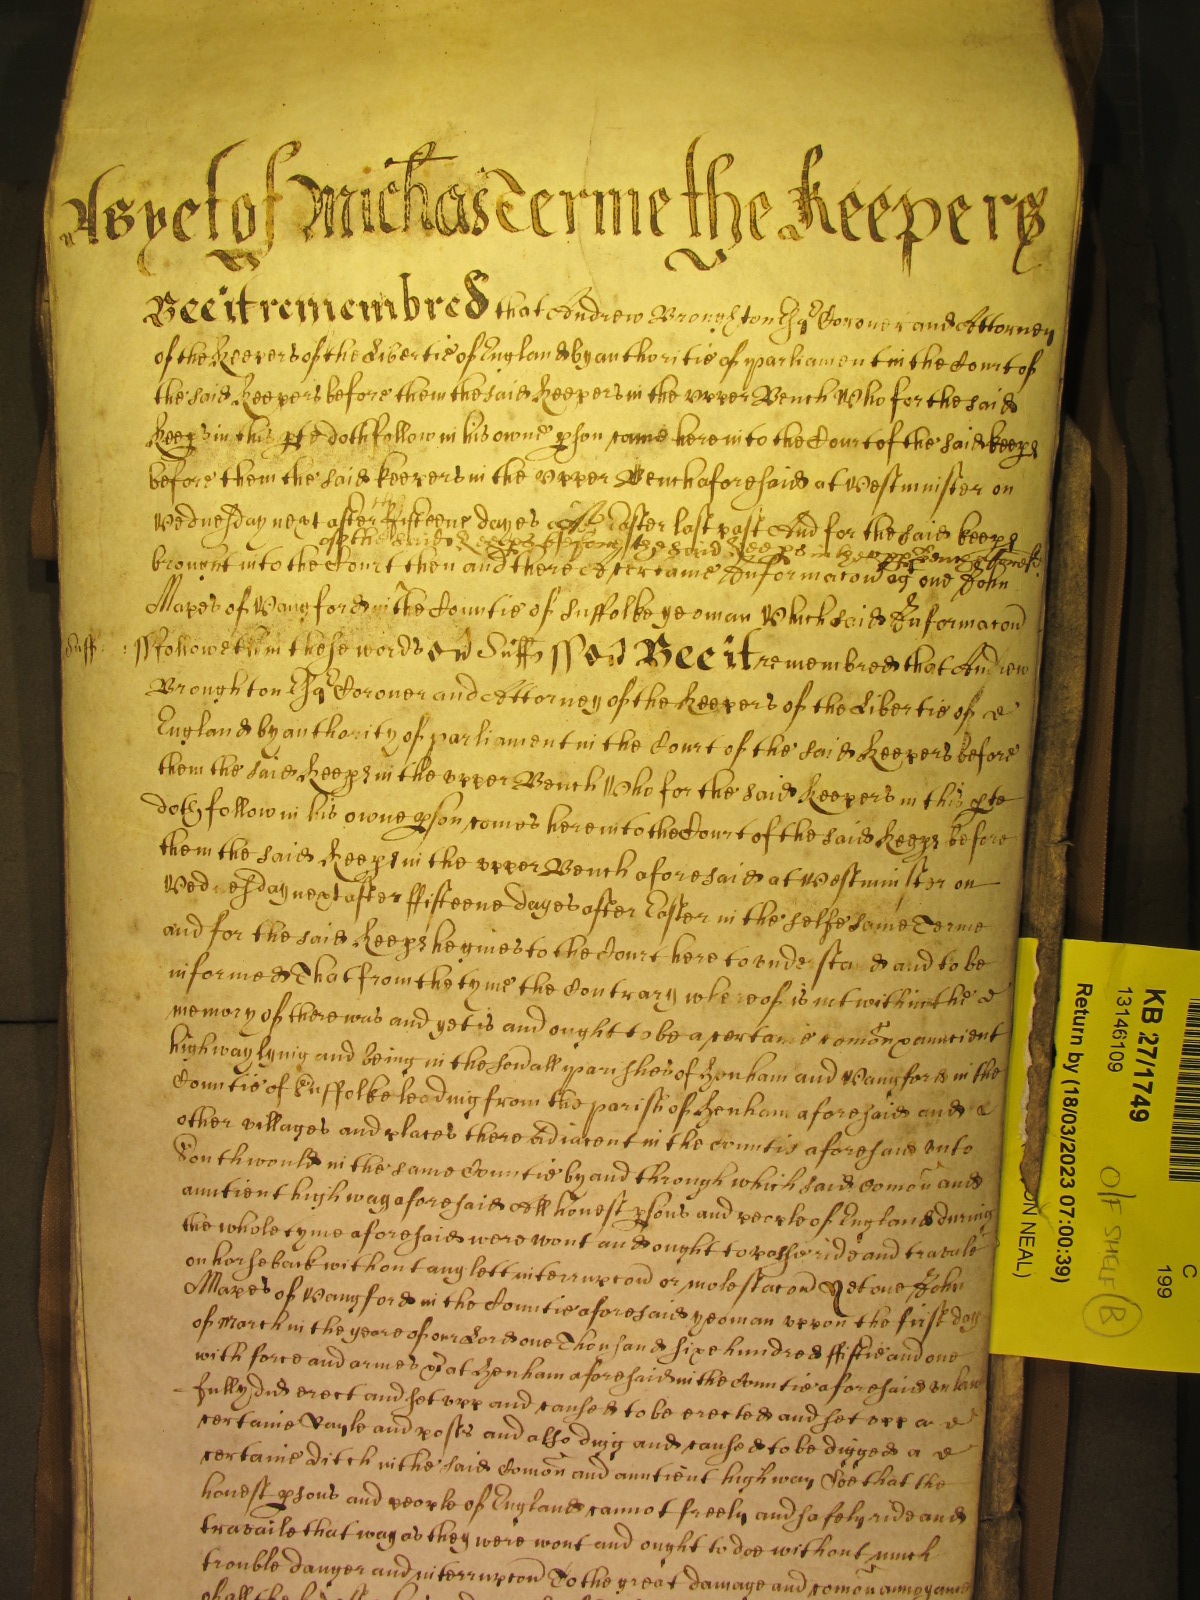 As yet of Michas Terme the Keepers
Bee it remembred that Andrew Broughton Esqr Coroner and Attorney
of the Keepers of the Libertie of England by authoritie of parliament in the Court of
the said Keepers before them the said Keepers in the vpper Bench Who for the said
Keeps in this pte doth follow in his owne pson came here into the Court of the said keeps
before them the said keepers in the vpper Bench aforesaid at Westminister on
Wednesday next after ffifteene dayes after Easter last past And for the said keeps
of the said Keeps before the said Keeps in the vpper Bench
brought into the Court then and there a certaine Informacon agt one John
Mapes of Wangford in the Countie of Suffolke yeoman Which said Informacon
Suff: ss followeth in these words ss Suff ss Bee it remembred that Andrew
Broughton Esqr Coroner and Attorney of the Keepers of the Libertie of
England by authority of parliament in the Court of the said Keepers before
them the said Keeps in the vpper Bench Who for the said Keepers in this pte
doth follow in his owne pson comes here into the Court of the said Keeps before
them the said Keeps in the vpper Bench aforesaid at Westminster on
Wednesday next after ffifteene dayes after Easter in the selfe same Terme
and for the said Keeps he gives to the Court here to vnderstand and to be
informed That from the tyme the Contrary whereof is not within the
memory of there was and yet is and ought to be a certaine comon auncient
highway lying and being in the seuall parishes of Henham and Wangford in the
Countie of Suffolke leading from the parish of Henham aforesaid and
other villages and places there adiacent in the countie aforesaid vnto
Southwould in the same Countie by and through which said Comon and
auntient highway aforesaid All honest psons and people of England during
the whole tyme aforesaid were wont and ought to passe ride and travaile
on horseback without any lett interrupcon or molestacon Yet one John
Mapes of Wangford in the Countie aforesaid yeoman vppon the first day
of March in the yeare of our Lord one Thousand sixe hundred ffiftie and one
with force and armes at Henham aforesaid in the Countie aforesaid vnlaw
fully did erect and set vpp and caused to be erected and set vpp a
certaine Rayle and posts and also digg and caused to be digged a
certaine ditch in the said Comon and auntient highway Soe that the
honest psons and people of England cannot freely and safely ride and
travaile that way as they were wont and ought to doe without much
trouble danger and interrupcon To the great damage and comon annoyance
of all the
C
199
KB 27/1749
13146109
Return by (18/03/2023 07:00:39)
ON NEAL)
O/F SHELF B